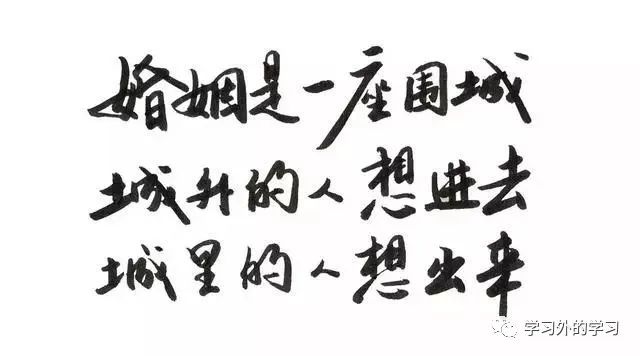 婚姻是一座围城
城外的人想进去
城里的人想出来
学习外的学习